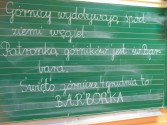 Górnicy wydobywają spod
ziemi węgiel.
Patronką górników jest św. Bar
bara.
Święto górnicze 4 grudnia to:
"BARBÓRKA